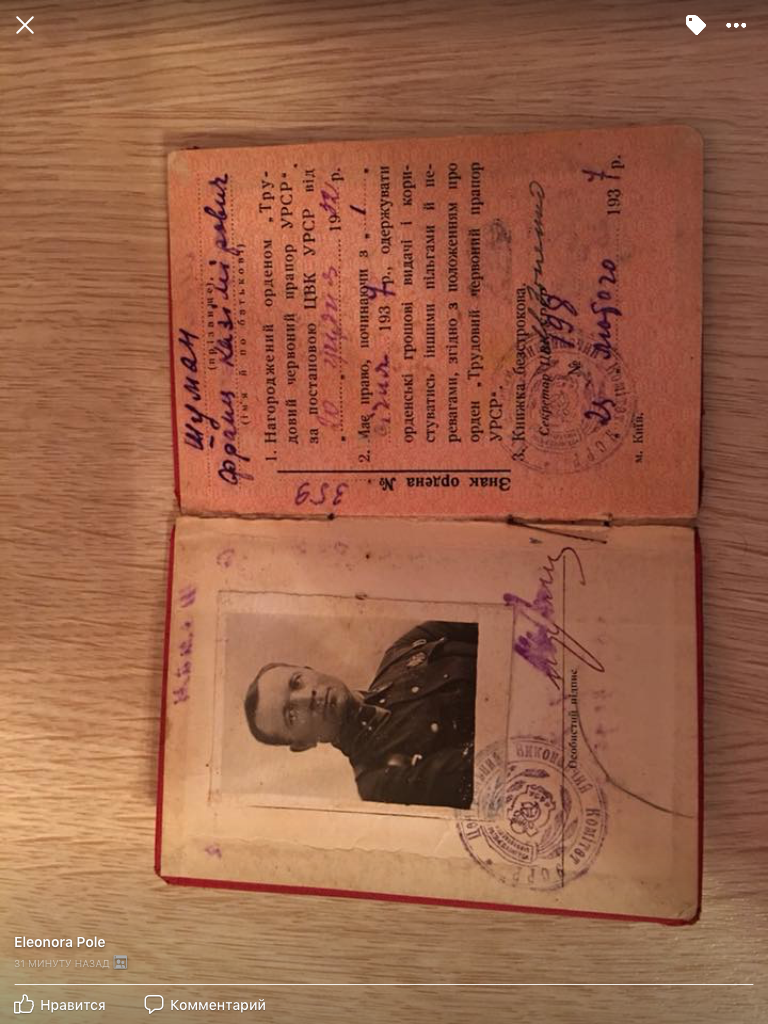 Шуман
(прізвище).
Франц Казімірович
(ім'я й по батькові)
1. Нагороджений орденом „Тру-
довий червоний прапор УРСР“.
за постановою ЦВК УРСР від
„20“ 1932 р.
2. Має право, починаючи з „1“
січня 1937 р., одержувати
орденські грошові видачі і кори-
стуватись іншими пільгами й пе-
ревагами, згідно з положенням про
орден „Трудовий червоний прапор
УРСР“.
3. Книжка безстрокова.
Секретар
№ 798
23 лютого 1937 р.
м. Київ.
Знак ордена №
359
Особистий підпис
Комітет УСРР
Eleonora Pole
31 МИНУТУ НАЗАД
Нравится
Комментарий